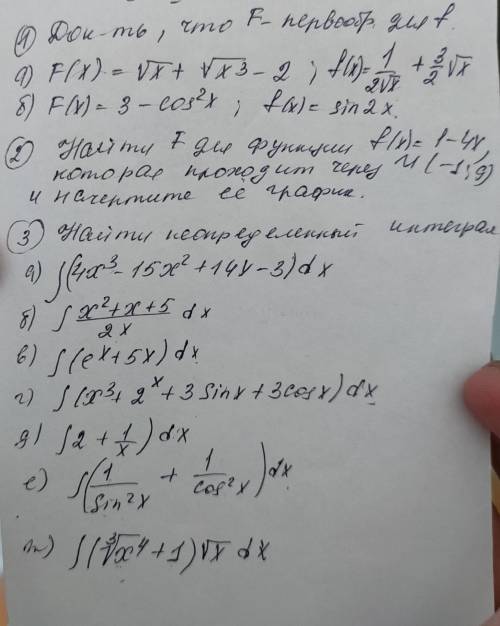 ① Док-ть, что F- первообр. для f.
а) F(x) = √x + √x3 - 2 ; f(x)= 1/2√x + 3/2 √x
б) F(x) = 3 - cos²x ; f(x) = sin 2x.
② Найти F для функции f(x)= 1-4x,
которая проходит через M (-1; 9)
и начертите её график.
③ Найти неопределенный интеграл
а) ∫(4x³- 15x² + 14x - 3) dx
б) ∫ x²+x+5/2x dx
в) ∫ (eˣ + 5x) dx
г) ∫ (x³ + 2ˣ + 3 sinx + 3cosx) dx
д) ∫ 2 + 1/x ) dx
е) ∫( 1/sin²x + 1/cos²x ) dx
ж) ∫ (∛x⁴ + 1) √x dx